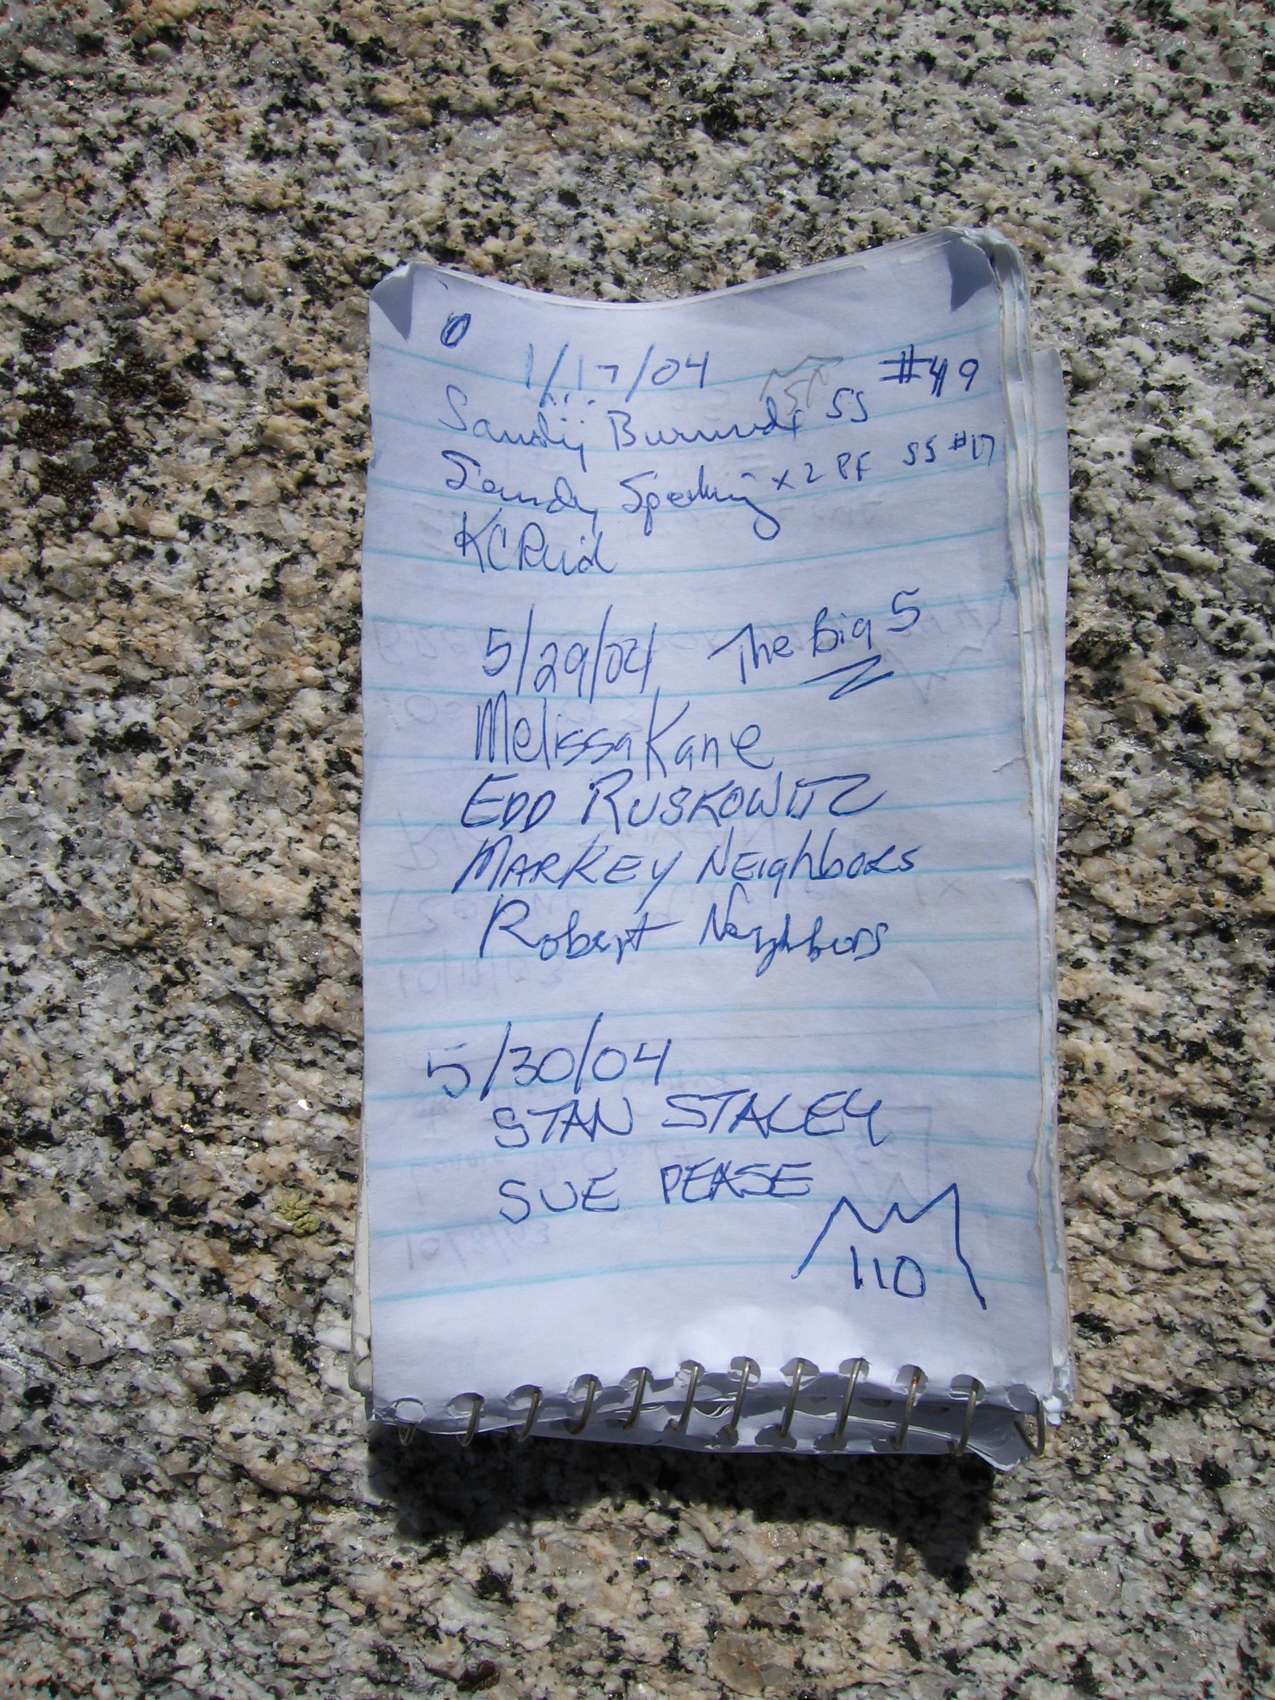 1/17/04
Sandy SS #49
Sandy x2 PF SS #17
KC Reid
5/29/04 The Big 5
Melissa Kane
EDD RUSKOWITZ
MARKEY NEIghboRS
Robert Neighbors
5/30/04
STAN STACEY
SUE PEASE
110